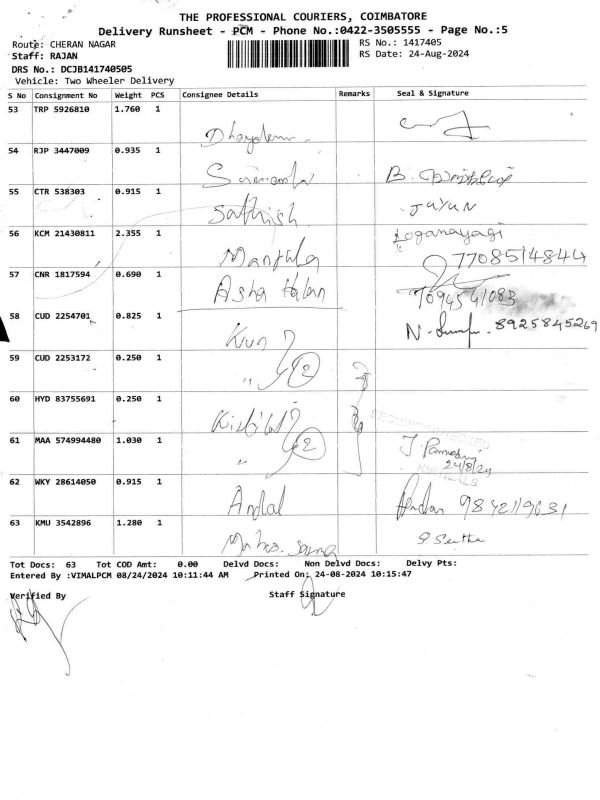 THE PROFESSIONAL COURIERS, COIMBATORE
Delivery Runsheet - PCM - Phone No.:0422-3505555 - Page No.:5
Route: CHERAN NAGAR
RS No.: 1417405
Staff: RAJAN
RS Date: 24-Aug-2024
DRS No.: DCJB141740505
Vehicle: Two Wheeler Delivery
S No Consignment No Weight PCS Consignee Details Remarks Seal & Signature
53 TRP 5926810 1.760 1
54 RJP 3447009 0.935 1
55 CTR 538303 0.915 1 Sathish
56 KCM 21430811 2.355 1 Manjula Loganayagi
7708514844
57 CNR 1817594 0.690 1 Asha
7094541083
58 CUD 2254701 0.825 1 8925845269
59 CUD 2253172 0.250 1 " 2
60 HYD 83755691 0.250 1
61 MAA 574994480 1.030 1 " 2
24/8/24
62 WKY 28614050 0.915 1 Andal
63 KMU 3542896 1.280 1
Tot Docs: 63 Tot COD Amt: 0.00 Delvd Docs: Non Delvd Docs: Delvy Pts:
Entered By :VIMALPCM 08/24/2024 10:11:44 AM Printed On: 24-08-2024 10:15:47
Verified By Staff Signature